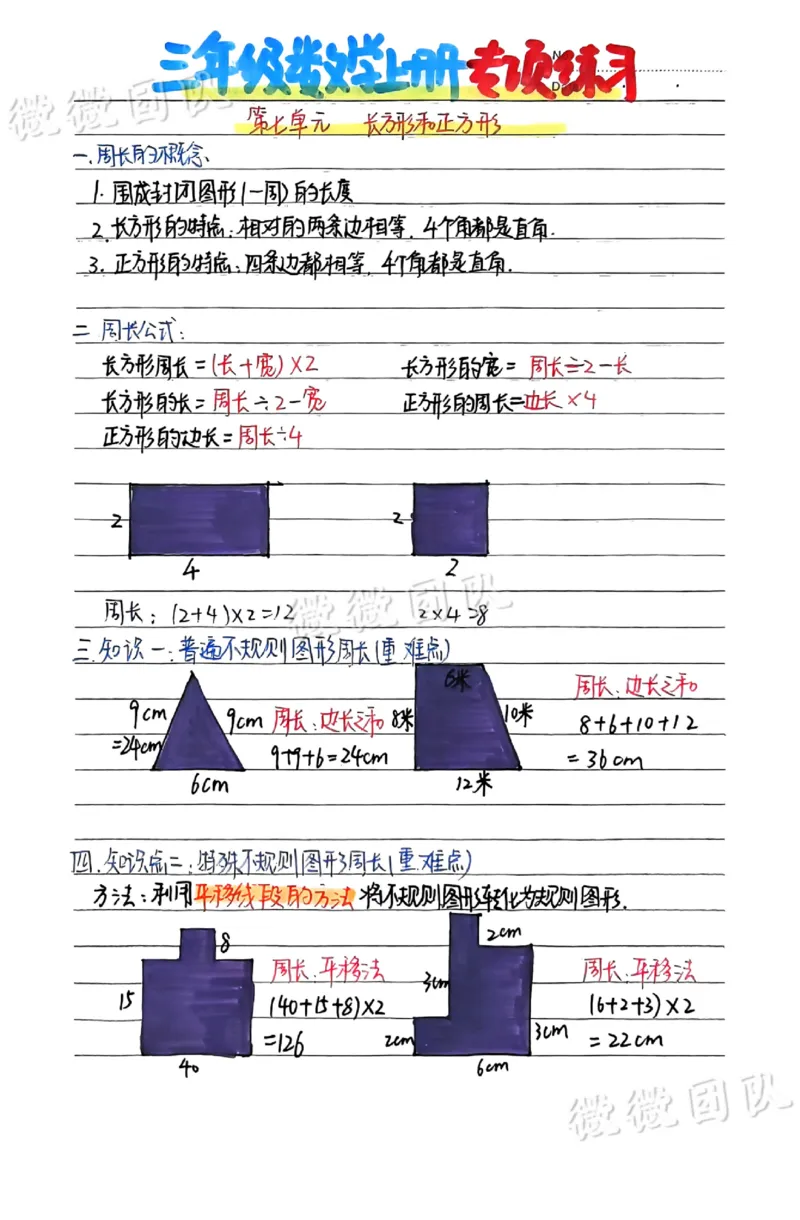 三年级数学上册专项练习
微微团队
第七单元 长方形和正方形
一.周长的概念、
1. 围成封闭图形(一周)的长度
2.长方形的特点:相对的两条边相等,4个角都是直角.
3. 正方形的特点:四条边都相等,4个角都是直角.
二 周长公式:
长方形周长=(长+宽)×2 长方形的宽= 周长÷2-长
长方形的长=周长÷2-宽 正方形的周长=边长×4
正方形的边长=周长÷4
2 2
4 2
周长:(2+4)×2=12 2×4=8
微微团队
三.知识一:普通不规则图形周长(重难点)
6米 周长:边长之和
9cm 9cm 周长:边长之和 8米 10米 8+6+10+12
=24cm 9+9+6=24cm =36cm
6cm 12米
四.知识点二:特殊不规则图形周长(重.难点)
方法:利用平移线段的方法 将不规则图形转化为规则图形.
8 2cm
周长:平移法 3cm 周长:平移法
15 (40+15+8)×2 (6+2+3)×2
=126 2cm 3cm =22cm
40 6cm
微微团队